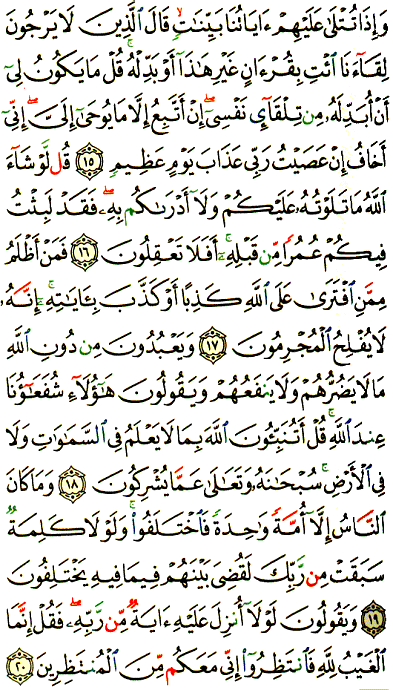 وَإِذَا تُتْلَىٰ عَلَيْهِمْ ءَايَاتُنَا بَيِّنَٰتٍۙ قَالَ ٱلَّذِينَ لَا يَرْجُونَ
لِقَآءَنَا ٱئْتِ بِقُرْءَانٍ غَيْرِ هَٰذَآ أَوْ بَدِّلْهُۚ قُلْ مَا يَكُونُ لِىٓ
أَنْ أُبَدِّلَهُۥ مِن تِلْقَآئِ نَفْسِىٓۖ إِنْ أَتَّبِعُ إِلَّا مَا يُوحَىٰٓ إِلَىَّۖ إِنِّىٓ
أَخَافُ إِنْ عَصَيْتُ رَبِّى عَذَابَ يَوْمٍ عَظِيمٍ ١٥ قُل لَّوْ شَآءَ
ٱللَّهُ مَا تَلَوْتُهُۥ عَلَيْكُمْ وَلَآ أَدْرَىٰكُم بِهِۦۖ فَقَدْ لَبِثْتُ
فِيكُمْ عُمُرًا مِّن قَبْلِهِۦٓۚ أَفَلَا تَعْقِلُونَ ١٦ فَمَنْ أَظْلَمُ
مِمَّنِ ٱفْتَرَىٰ عَلَى ٱللَّهِ كَذِبًا أَوْ كَذَّبَ بِـَٔايَٰتِهِۦٓۚ إِنَّهُۥ
لَا يُفْلِحُ ٱلْمُجْرِمُونَ ١٧ وَيَعْبُدُونَ مِن دُونِ ٱللَّهِ
مَا لَا يَضُرُّهُمْ وَلَا يَنفَعُهُمْ وَيَقُولُونَ هَٰٓؤُلَآءِ شُفَعَٰٓؤُنَا
عِندَ ٱللَّهِۚ قُلْ أَتُنَبِّـُٔونَ ٱللَّهَ بِمَا لَا يَعْلَمُ فِى ٱلسَّمَٰوَٰتِ وَلَا
فِى ٱلْأَرْضِۚ سُبْحَٰنَهُۥ وَتَعَٰلَىٰ عَمَّا يُشْرِكُونَ ١٨ وَمَا كَانَ
ٱلنَّاسُ إِلَّآ أُمَّةً وَٰحِدَةً فَٱخْتَلَفُوا۟ۚ وَلَوْلَا كَلِمَةٌ
سَبَقَتْ مِن رَّبِّكَ لَقُضِىَ بَيْنَهُمْ فِيمَا فِيهِ يَخْتَلِفُونَ
١٩ وَيَقُولُونَ لَوْلَآ أُنزِلَ عَلَيْهِ ءَايَةٌ مِّن رَّبِّهِۦۖ فَقُلْ إِنَّمَا
ٱلْغَيْبُ لِلَّهِ فَٱنتَظِرُوٓا۟ إِنِّى مَعَكُم مِّنَ ٱلْمُنتَظِرِينَ ٢٠